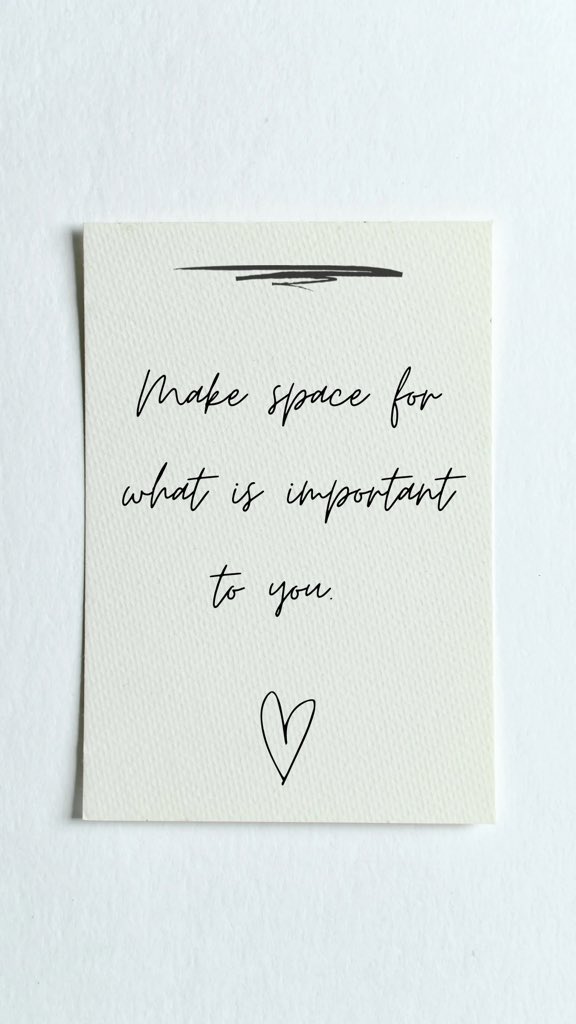 Make space for
what is important
to you.